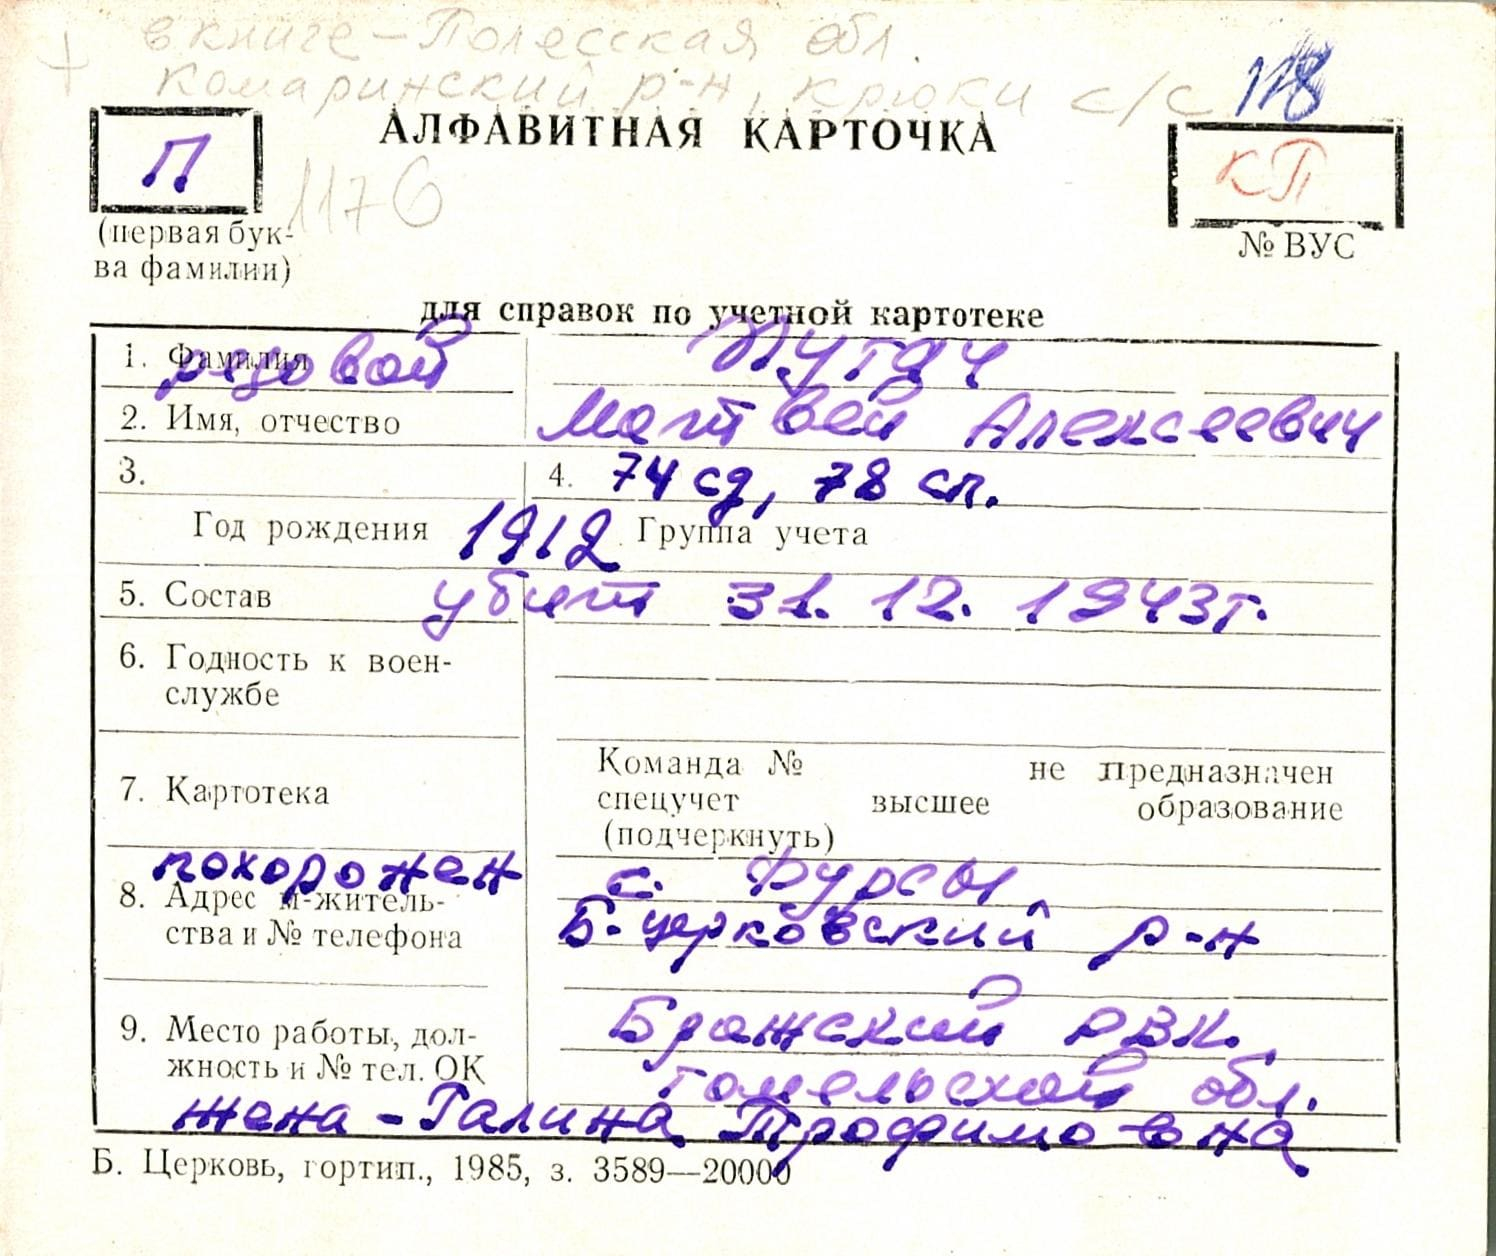 в книге - Полесская обл.
Комаринский р-н, Крюки с/с 118
АЛФАВИТНАЯ КАРТОЧКА
П
кП
1176
(первая бук-
ва фамилии)
№ ВУС
для справок по учетной картотеке
1. Фамилия рядовой Пугач
2. Имя, отчество Матвей Алексеевич
3. 4. 74 сд, 78 сп.
Год рождения 1912 Группа учета
5. Состав убит 31.12.1943г.
6. Годность к воен-
службе
Команда № не предназначен
7. Картотека спецучет высшее образование
(подчеркнуть)
похоронен с. Фурсы
8. Адрес м-житель-
ства и № телефона Б-церковский р-н
9. Место работы, дол- РВК.
жность и № тел. ОК Гомельской обл.
жена - Галина Трофимовна
Б. Церковь, гортип., 1985, з. 3589—20000